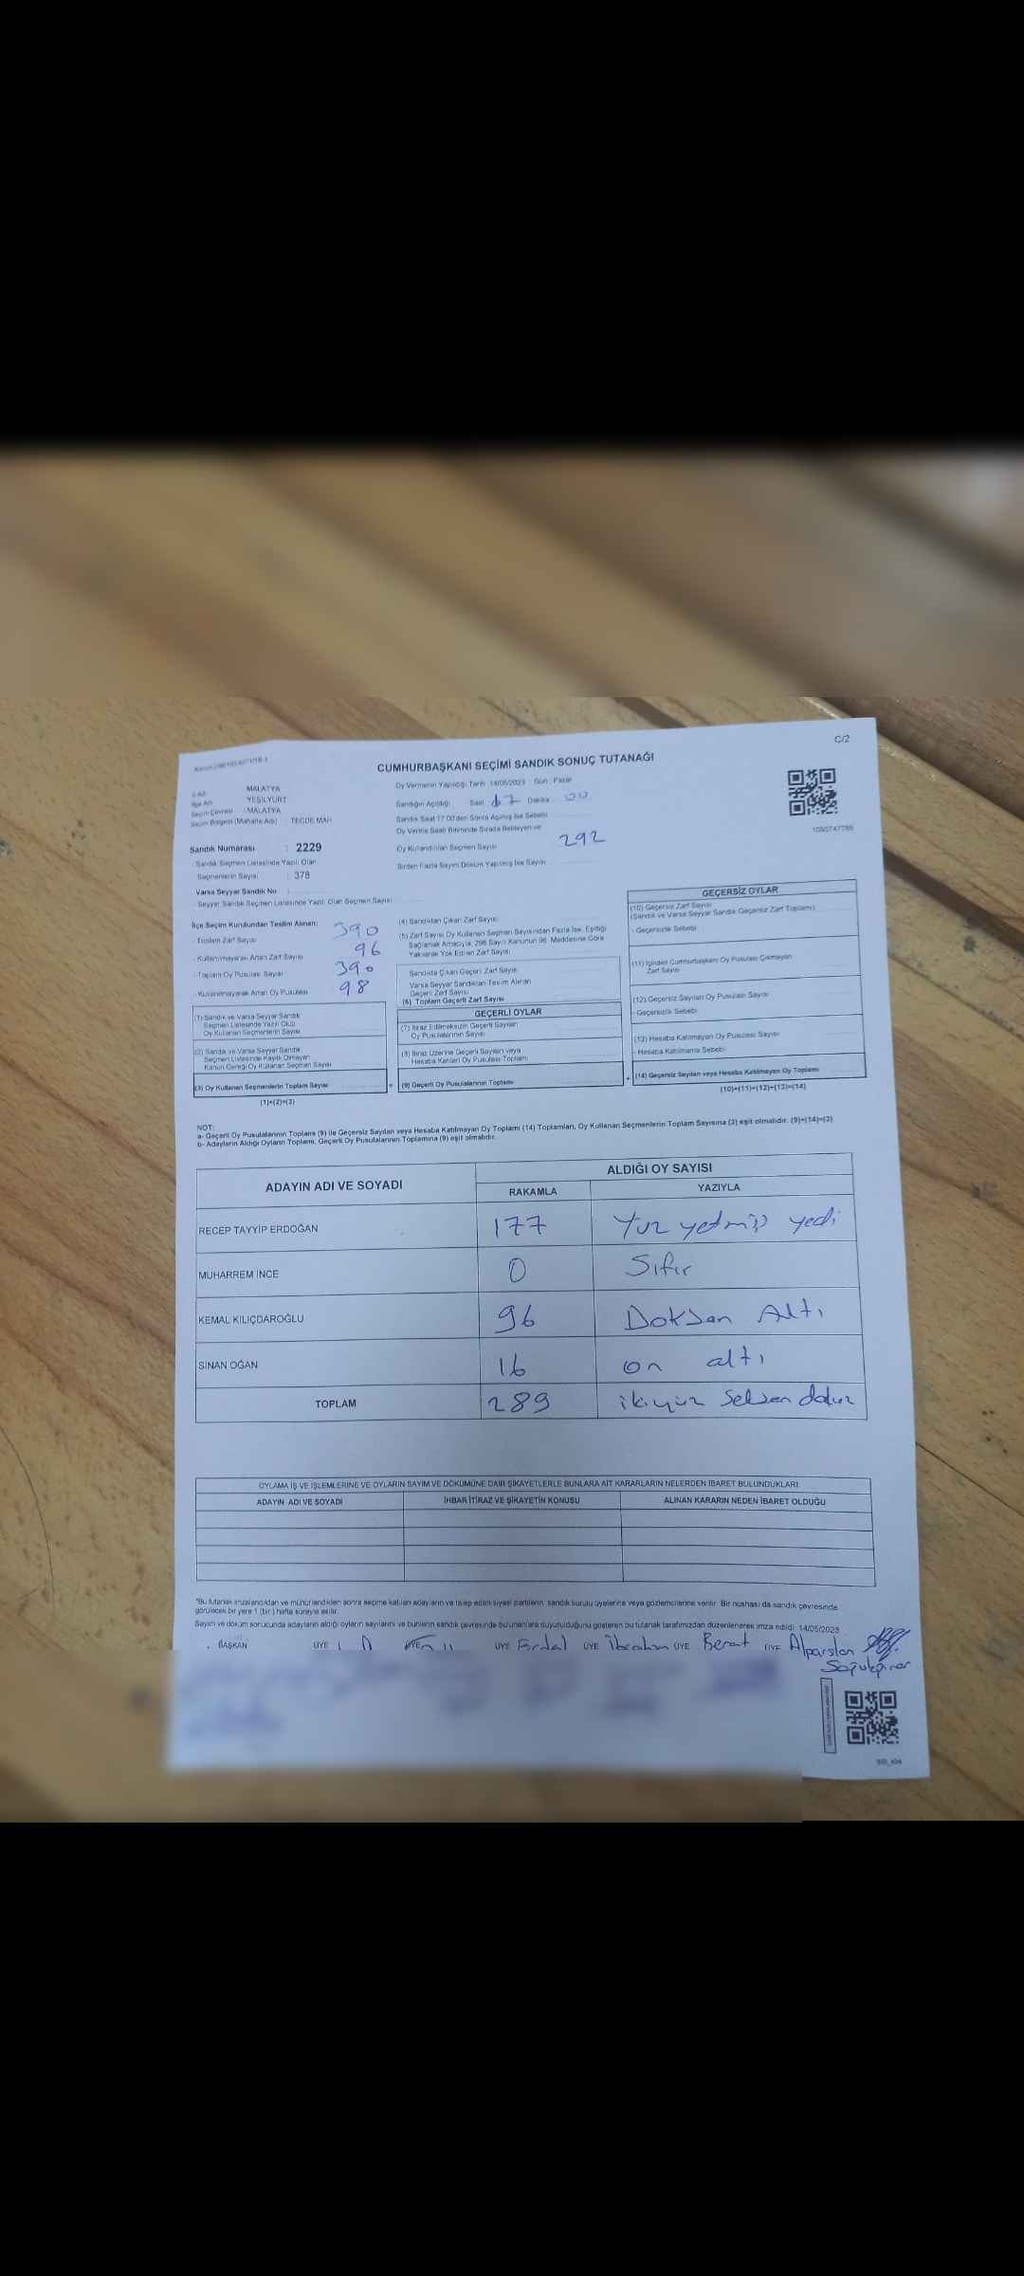 C/2
CUMHURBAŞKANI SEÇİMİ SANDIK SONUÇ TUTANAĞI
MALATYA
İlçe Adı YEŞİLYURT
Seçim Çevresi : MALATYA
Seçim Bölgesi (Mahalle Adı) : TECDE MAH.
Oy Vermenin Yapıldığı Tarih : 14/05/2023 Gün : Pazar
Sandığın Açıldığı : Saat 17 Dakika 00
Sandık Saat 17.00'den Sonra Açılmış İse Sebebi
Oy Verme Saati Bitiminde Sırada Bekleyen ve
Oy Kullandırılan Seçmen Sayısı 292
Birden Fazla Sayım Döküm Yapılmış İse Sayısı
Sandık Numarası : 2229
Sandık Seçmen Listesinde Yazılı Olan
Seçmenlerin Sayısı : 378
Varsa Seyyar Sandık No
Seyyar Sandık Seçmen Listesinde Yazılı Olan Seçmen Sayısı
İlçe Seçim Kurulundan Teslim Alınan:
- Toplam Zarf Sayısı 390
- Kullanılmayarak Artan Zarf Sayısı 96
- Toplam Oy Pusulası Sayısı 390
- Kullanılmayarak Artan Oy Pusulası 98
(1) Sandık ve Varsa Seyyar Sandık
Seçmen Listesinde Yazılı Olup
Oy Kullanan Seçmenlerin Sayısı
(2) Sandık ve Varsa Seyyar Sandık
Seçmen Listesinde Kayıtlı Olmayan
Kanun Gereği Oy Kullanan Seçmen Sayısı
(3) Oy Kullanan Seçmenlerin Toplam Sayısı
(1)+(2)=(3)
(4) Sandıktan Çıkan Zarf Sayısı
(5) Zarf Sayısı Oy Kullanan Seçmen Sayısından Fazla İse, Eşitliği
Sağlamak Amacıyla, 298 Sayılı Kanunun 98. Maddesine Göre
Yakılarak Yok Edilen Zarf Sayısı
Sandıkta Çıkan Geçerli Zarf Sayısı
Varsa Seyyar Sandıktan Teslim Alınan
Geçerli Zarf Sayısı
(6) Toplam Geçerli Zarf Sayısı
GEÇERLİ OYLAR
(7) İtiraz Edilmeksizin Geçerli Sayılan
Oy Pusulalarının Sayısı
(8) İtiraz Üzerine Geçerli Sayılan veya
Hesaba Katılan Oy Pusulası Toplamı
(9) Geçerli Oy Pusulalarının Toplamı
GEÇERSİZ OYLAR
(10) Geçersiz Zarf Sayısı
(Sandık ve Varsa Seyyar Sandık Geçersiz Zarf Toplamı)
- Geçersizlik Sebebi
(11) İçinden Cumhurbaşkanı Oy Pusulası Çıkmayan
Zarf Sayısı
(12) Geçersiz Sayılan Oy Pusulası Sayısı
- Geçersizlik Sebebi
(13) Hesaba Katılmayan Oy Pusulası Sayısı
- Hesaba Katılmama Sebebi
(14) Geçersiz Sayılan veya Hesaba Katılmayan Oy Toplamı
(10)+(11)+(12)+(13)=(14)
NOT:
a- Geçerli Oy Pusulalarının Toplamı (9) ile Geçersiz Sayılan veya Hesaba Katılmayan Oy Toplamı (14) Toplamları, Oy Kullanan Seçmenlerin Toplam Sayısına (3) eşit olmalıdır. (9)+(14)=(3)
b- Adayların Aldığı Oyların Toplamı, Geçerli Oy Pusulalarının Toplamına (9) eşit olmalıdır.
ADAYIN ADI VE SOYADI ALDIĞI OY SAYISI
RAKAMLA YAZIYLA
RECEP TAYYİP ERDOĞAN 177 Yüz yetmiş yedi
MUHARREM İNCE 0 Sıfır
KEMAL KILIÇDAROĞLU 96 Doksan Altı
SİNAN OĞAN 16 on altı
TOPLAM 289 ikiyüz Seksen dokuz
OYLAMA İŞ VE İŞLEMLERİNE VE OYLARIN SAYIM VE DÖKÜMÜNE DAİR ŞİKAYETLERLE BUNLARA AİT KARARLARIN NELERDEN İBARET BULUNDUKLARI
ADAYIN ADI VE SOYADI İHBAR İTİRAZ VE ŞİKAYETİN KONUSU ALINAN KARARIN NEDEN İBARET OLDUĞU
*Bu tutanak imzalandıktan ve mühürlendikten sonra seçime katılan adayların ve talep eden siyasi partilerin sandık kurulu üyelerine veya gözlemcilerine verilir. Bir nüshası da sandık çevresinde
görülecek bir yere 1 (bir) hafta süreyle asılır.
Sayım ve döküm sonucunda adayların aldığı oyların sayılarını ve bunların sandık çevresinde bulunanlara duyurulduğunu gösteren bu tutanak tarafımızdan düzenlenerek imza edildi. 14/05/2023
BAŞKAN ÜYE ÜYE Erdal ÜYE İbrahim ÜYE Berat ÜYE Alparslan
Soğukpınar